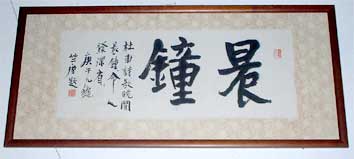 晨鐘
杜甫詩欲覺聞
晨鐘令人
發深省
庚午
竺摩題